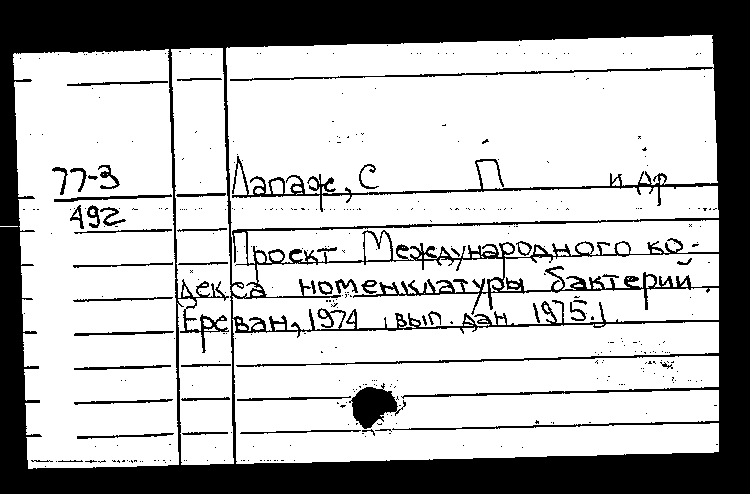 77-3
492
Лапаж, С П и др.
Проект Международного ко-
декса номенклатуры бактерий.
Ереван, 1974 [вып. дан. 1975.]